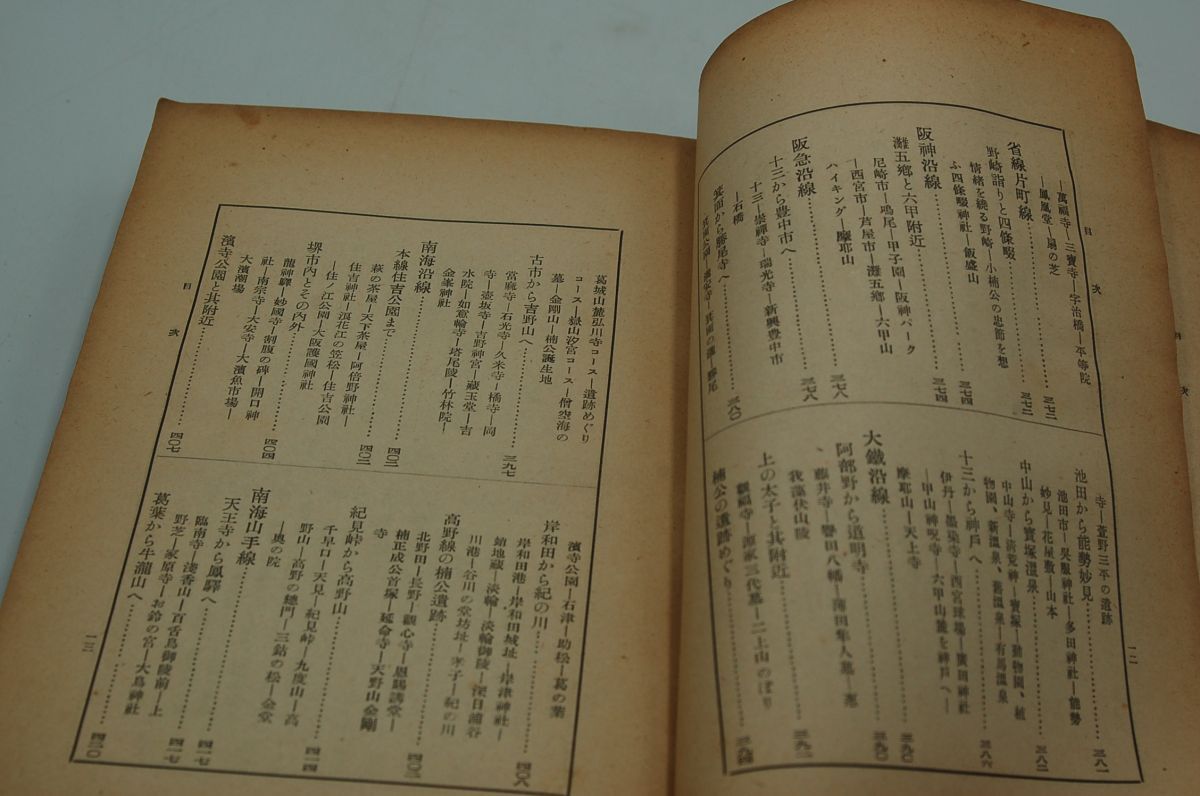 目次
一二
—萬福寺—三寶寺—宇治橋—平等院
—鳳凰堂—扇の芝……三七二
省線片町線……三七二
野崎詣りと四條畷……三七四
情緒を繞る野崎—小楠公の忠節を想
ふ四條畷神社—飯盛山
阪神沿線……三七四
灘五鄕と六甲附近
尼崎市—鳴尾—甲子園—阪神パーク
—西宮市—芦屋市—灘五鄕—六甲山
ハイキング—摩耶山
阪急沿線……三七八
十三から豊中市へ……三七八
十三—崇禪寺—瑞光寺—新興豊中市
—石橋
箕面から勝尾寺へ……三八〇
寺—萱野三平の遺跡
池田から能勢妙見……三八一
池田市—吳服神社—多田神社—能勢
妙見—花屋敷—山本
中山から寶塚溫泉……三八二
中山寺—淸荒神—寶塚—動物園、植
物園、新溫泉、舊溫泉—有馬溫泉
十三から神戶へ……三八六
伊丹—墨染寺—西宮球場—廣田神社
—甲山神呪寺—六甲山麓を神戶へ—
摩耶山—天上寺
大鐵沿線……三九〇
阿部野から道明寺……三九〇
藤井寺—譽田八幡—
我
上の太子と其附近……三九二
叡福寺—源家三代墓—二上山のぼり
楠公の遺跡めぐり……三九四
葛城山麓弘川寺コース—遺跡めぐり
コース—嶽山汐宮コース—僧空海の
墓—金剛山—楠公誕生地
古市から吉野山へ……三九七
當麻寺—石光寺—久米寺—橘寺—岡
寺—壺坂寺—吉野神宮—藏王堂—吉
水院—如意輪寺—塔尾陵—竹林院—
金峯神社
南海沿線……四〇二
本線住吉公園まで……四〇二
萩の茶屋—天下茶屋—阿倍野神社—
住吉神社—浪花江の笠松—住吉公園
—住ノ江公園—大阪護國神社
堺市內とその內外……四〇四
龍神驛—妙國寺—割腹の碑—開口神
社—南宗寺—大安寺—大濱魚市場—
大濱潮場
濱寺公園と其附近……四〇七
目次
一三
濱寺公園—石津—助松—葛の葉
岸和田から紀の川……四〇八
岸和田港—岸和田城址—岸津神社—
蛸地藏—淡輪—淡輪御陵—深日浦谷
川港—谷川の堂坊址—孝子—紀の川
高野線の楠公遺跡……四〇二
北野田—長野—觀心寺—恩賜講堂—
楠正成公首塚—延命寺—天野山金剛
寺
紀見峠から高野山……四一四
千早口—天見—紀見峠—九度山—高
野山—高野の總門—三鈷の松—金堂
—奧の院
南海山手線……四一七
天王寺から鳳驛へ……四一七
臨南寺—淺香山—百舌鳥御陵前—上
野芝—家原寺—お鈴の宮—大鳥神社
葛葉から牛瀧山へ……四二〇